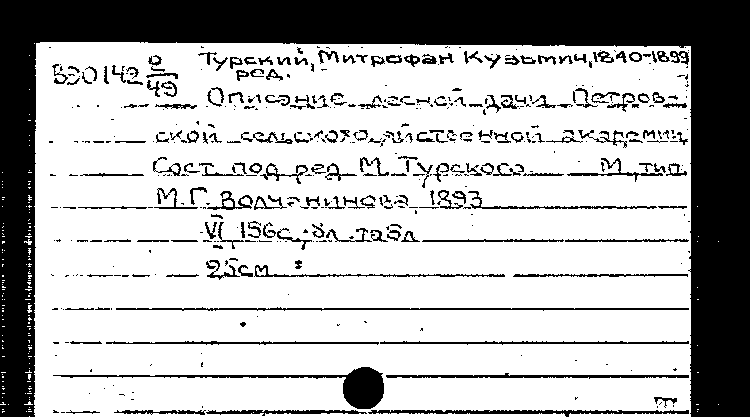 Турский, Митрофан Кузьмич, 1840-1899
ред.
Описание лесной дачи Петров-
ской сельскохозяйственной академии
Сост. под ред М. Турского М., тип.
М.Г. Волчанинова, 1893
VI, 156с.; 8л. табл
25см